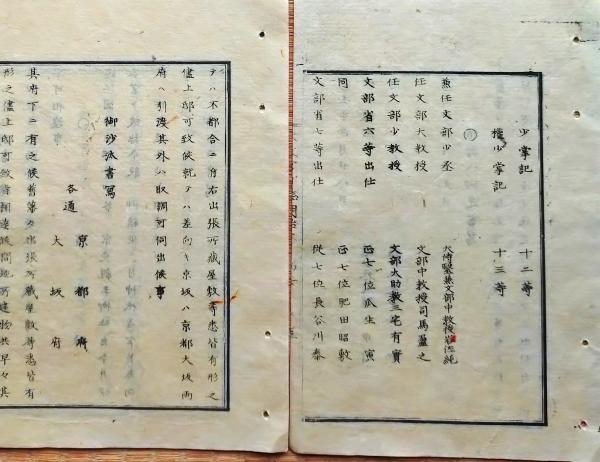 少掌記 十二等
權少掌記 十三等
兼任文部少丞 大侍醫兼文部中教授岩佐純
任文部大教授 文部中教授司馬盈之
任文部少教授 文部大助教三宅有實
文部省六等出仕 正七位瓜生寅
同 正七位肥田昭敷
文部省七等出仕 從七位長谷川泰
テハ不都合ニ付右出張所藏屋敷等悉皆有形之
儘上邸可致候就テハ差向キ京坂ハ京都大坂両
府ハ引渡其外ハ取調可伺出候事
御沙汰書寫
各通 京都府
大坂府
其府下ニ有之候舊藩々出張所藏屋敷等悉皆有
形之儘上邸可致